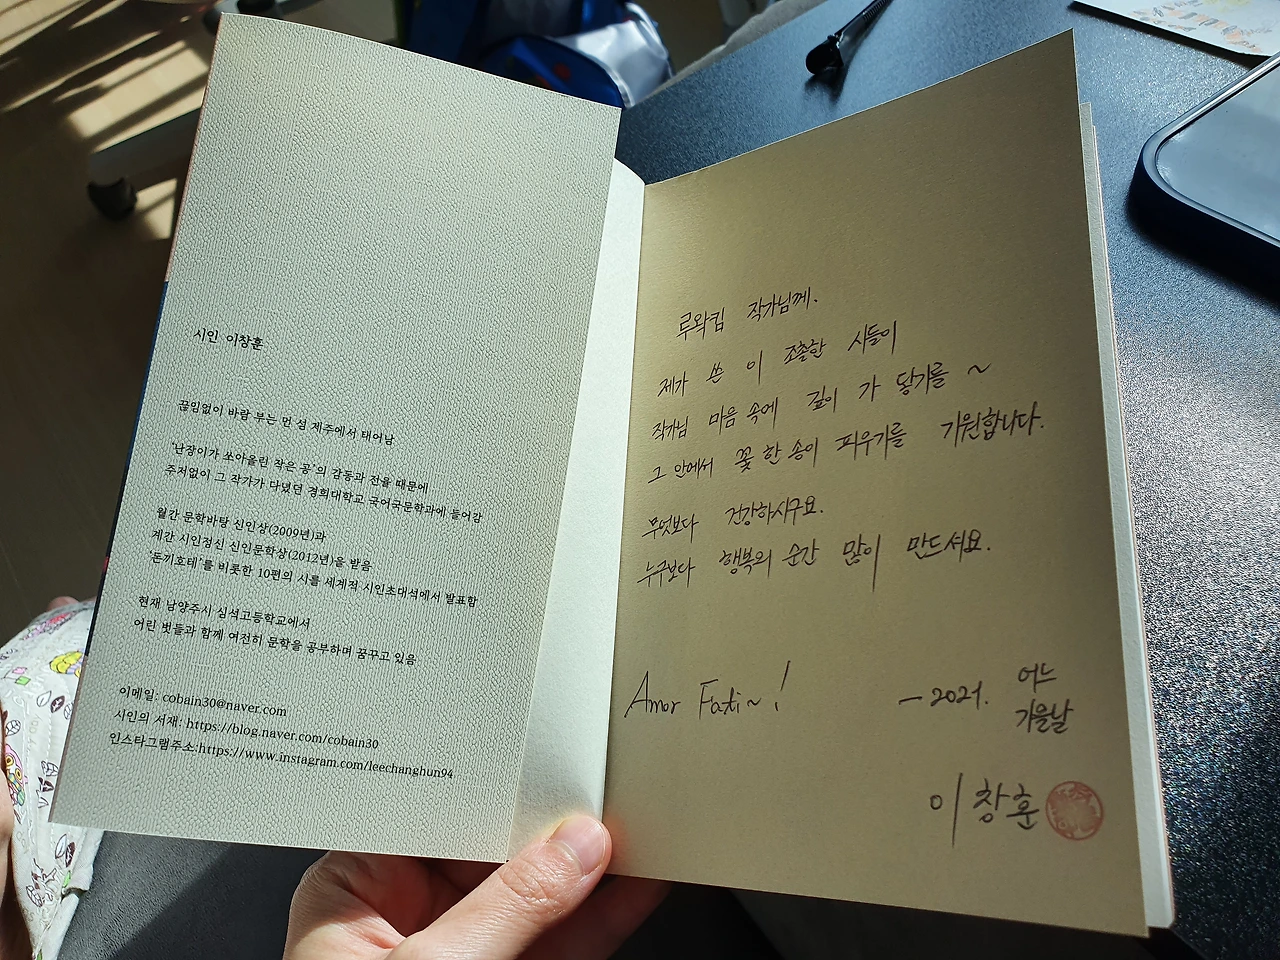 시인 이창훈
끊임없이 바람 부는 먼 섬 제주에서 태어남
'난장이가 쏘아올린 작은 공'의 감동과 전율 때문에
주저없이 그 작가가 다녔던 경희대학교 국어국문학과에 들어감
월간 문학바탕 신인상(2009년)과
계간 시인정신 신인문학상(2012년)을 받음
'돈키호테'를 비롯한 10편의 시를 세계적 시인초대석에서 발표함
현재 남양주시 심석고등학교에서
어린 벗들과 함께 여전히 문학을 공부하며 꿈꾸고 있음
이메일: cobain30@naver.com
시인의 서재: https://blog.naver.com/cobain30
인스타그램주소:https://www.instagram.com/leechanghun94
루왁킴 작가님께.
제가 쓴 이 조촐한 시들이
작가님 마음 속에 깊이 가 닿기를 ~
그 안에서 꽃 한 송이 피우기를 기원합니다.
무엇보다 건강하시구요.
누구보다 행복의 순간 많이 만드세요.
Amor Fati~!
- 2021. 어느
가을날
이창훈